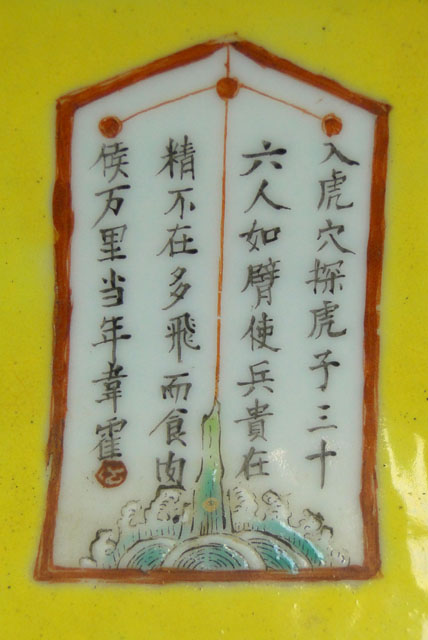 入虎穴探虎子三十
六人如臂使兵貴在
精不在多飛而食肉
侯万里当年韋霍